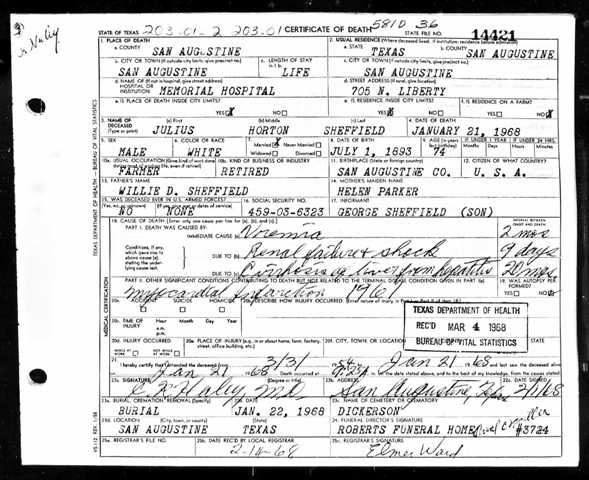 581D 36
STATE OF TEXAS 203-01-2 203-0/ CERTIFICATE OF DEATH STATE FILE NO. 14421
1. PLACE OF DEATH 2. USUAL RESIDENCE (Where deceased lived. If institution: residence before admission)
a. COUNTY SAN AUGUSTINE a. STATE TEXAS b. COUNTY SAN AUGUSTINE
b. CITY OR TOWN (If outside city limits, give precinct no.) c. LENGTH OF STAY c. CITY OR TOWN (If outside city limits, give precinct no.)
SAN AUGUSTINE LIFE SAN AUGUSTINE
d. NAME OF (If not in hospital, give street address) d. STREET ADDRESS (If rural, give location)
HOSPITAL OR INSTITUTION MEMORIAL HOSPITAL 705 N. LIBERTY
e. IS PLACE OF DEATH INSIDE CITY LIMITS? e. IS RESIDENCE INSIDE CITY LIMITS? f. IS RESIDENCE ON A FARM?
YES NO YES NO YES NO
3. NAME OF DECEASED (a) First (b) Middle (c) Last 4. DATE OF DEATH
(Type or print) JULIUS HORTON SHEFFIELD JANUARY 21, 1968
5. SEX 6. COLOR OR RACE 7. Married Never Married 8. DATE OF BIRTH 9. AGE IF UNDER 1 YEAR IF UNDER 24 HRS.
MALE WHITE Widowed Divorced JULY 1, 1893 74
10a. USUAL OCCUPATION 10b. KIND OF BUSINESS OR INDUSTRY 11. BIRTHPLACE (State or foreign country) 12. CITIZEN OF WHAT COUNTRY?
FARMER RETIRED SAN AUGUSTINE CO. U. S. A.
13. FATHER'S NAME 14. MOTHER'S MAIDEN NAME
WILLIE D. SHEFFIELD HELEN PARKER
15. WAS DECEASED EVER IN U.S. ARMED FORCES? 16. SOCIAL SECURITY NO. 17. INFORMANT
NO NONE 459-03-6323 GEORGE SHEFFIELD (SON)
18. CAUSE OF DEATH (Enter only one cause per line for (a), (b), and (c).)
PART I. DEATH WAS CAUSED BY:
IMMEDIATE CAUSE (a) Uremia 2 mos
Conditions, if any, which gave rise to above cause (a) stating the underlying cause last.
DUE TO (b) Renal failure & shock 9 days
DUE TO (c) Cirrhosis of liver from hepatitis 20 mos
PART II. OTHER SIGNIFICANT CONDITIONS CONTRIBUTING TO DEATH BUT NOT RELATED TO THE TERMINAL DISEASE CONDITION GIVEN IN PART I(a) 19. WAS AUTOPSY PERFORMED?
myocardial infarction 1961 YES NO
20a. ACCIDENT SUICIDE HOMICIDE 20b. DESCRIBE HOW INJURY OCCURRED
20c. TIME OF INJURY Hour Month Day Year
a.m.
p.m.
TEXAS DEPARTMENT OF HEALTH
REC'D MAR 4 1968
BUREAU OF VITAL STATISTICS
20d. INJURY OCCURRED 20e. PLACE OF INJURY (e.g., in or about home, farm, factory, street, office building, etc.) 20f. CITY, TOWN, OR LOCATION
21. I hereby certify that I attended the deceased from 3/31 Jan 21 68
22a. SIGNATURE (Degree or title) 22b. ADDRESS 22c. DATE SIGNED
M.D. San Augustine
23a. BURIAL, CREMATION, REMOVAL 23b. DATE 23c. NAME OF CEMETERY OR CREMATORY
BURIAL JAN. 22, 1968 DICKERSON
23d. LOCATION (City, town, or county) (State) 24. FUNERAL DIRECTOR'S SIGNATURE
SAN AUGUSTINE TEXAS ROBERTS FUNERAL HOME #3724
25a. REGISTRAR'S FILE NO. 25b. DATE REC'D BY LOCAL REGISTRAR 25c. REGISTRAR'S SIGNATURE
2-14-68 Elmer Ward
TEXAS DEPARTMENT OF HEALTH - BUREAU OF VITAL STATISTICS
MEDICAL CERTIFICATION